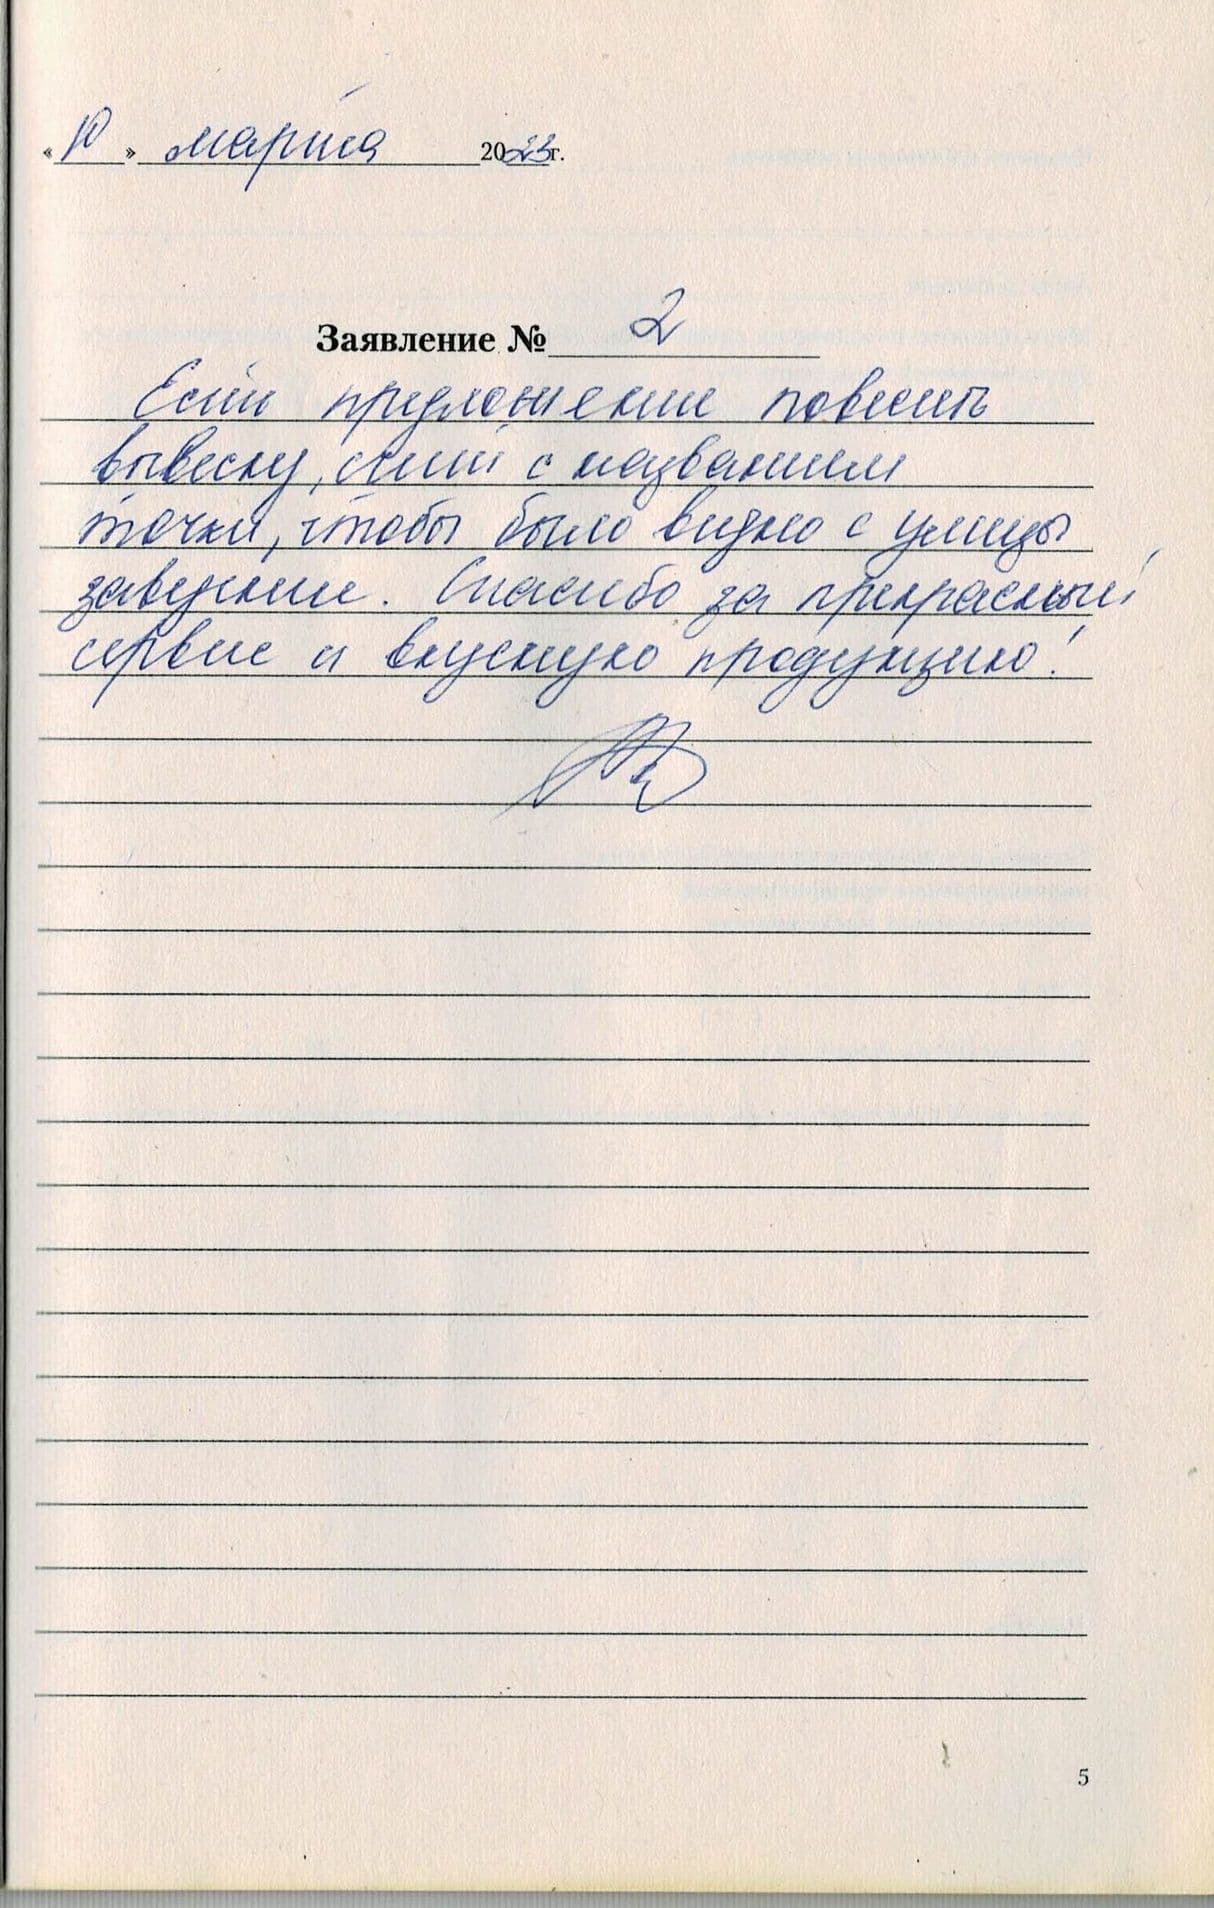 «10» марта 2023г.
Заявление № 2
Есть предложение повесить
вывеску, с названием
точки, чтобы было видно с улицы
заведение. Спасибо за прекрасный
сервис и вкусную продукцию!
5